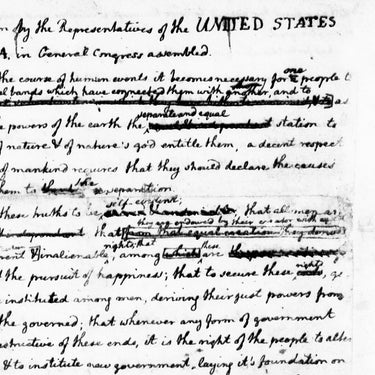 n by the Representatives of the UNITED STATES
A. in General Congress assembled.
the course of human events it becomes necessary for one people t
al bands which have connected them with another, and to
as
separate and equal
e powers of the earth the station to
of nature & of nature's god entitle them, a decent respect
of mankind requires that they should declare the causes
them to the separation.
self-evident;
these truths to be that all men are
they are endowed by their creator with
that from that equal creation they derive
rights; that these
inalienable, among which are
rights
d the pursuit of happiness; that to secure these ends, go
e instituted among men, deriving their just powers from
the governed; that whenever any form of government
structive of these ends, it is the right of the people to alter
& to institute new government, laying it's foundation on